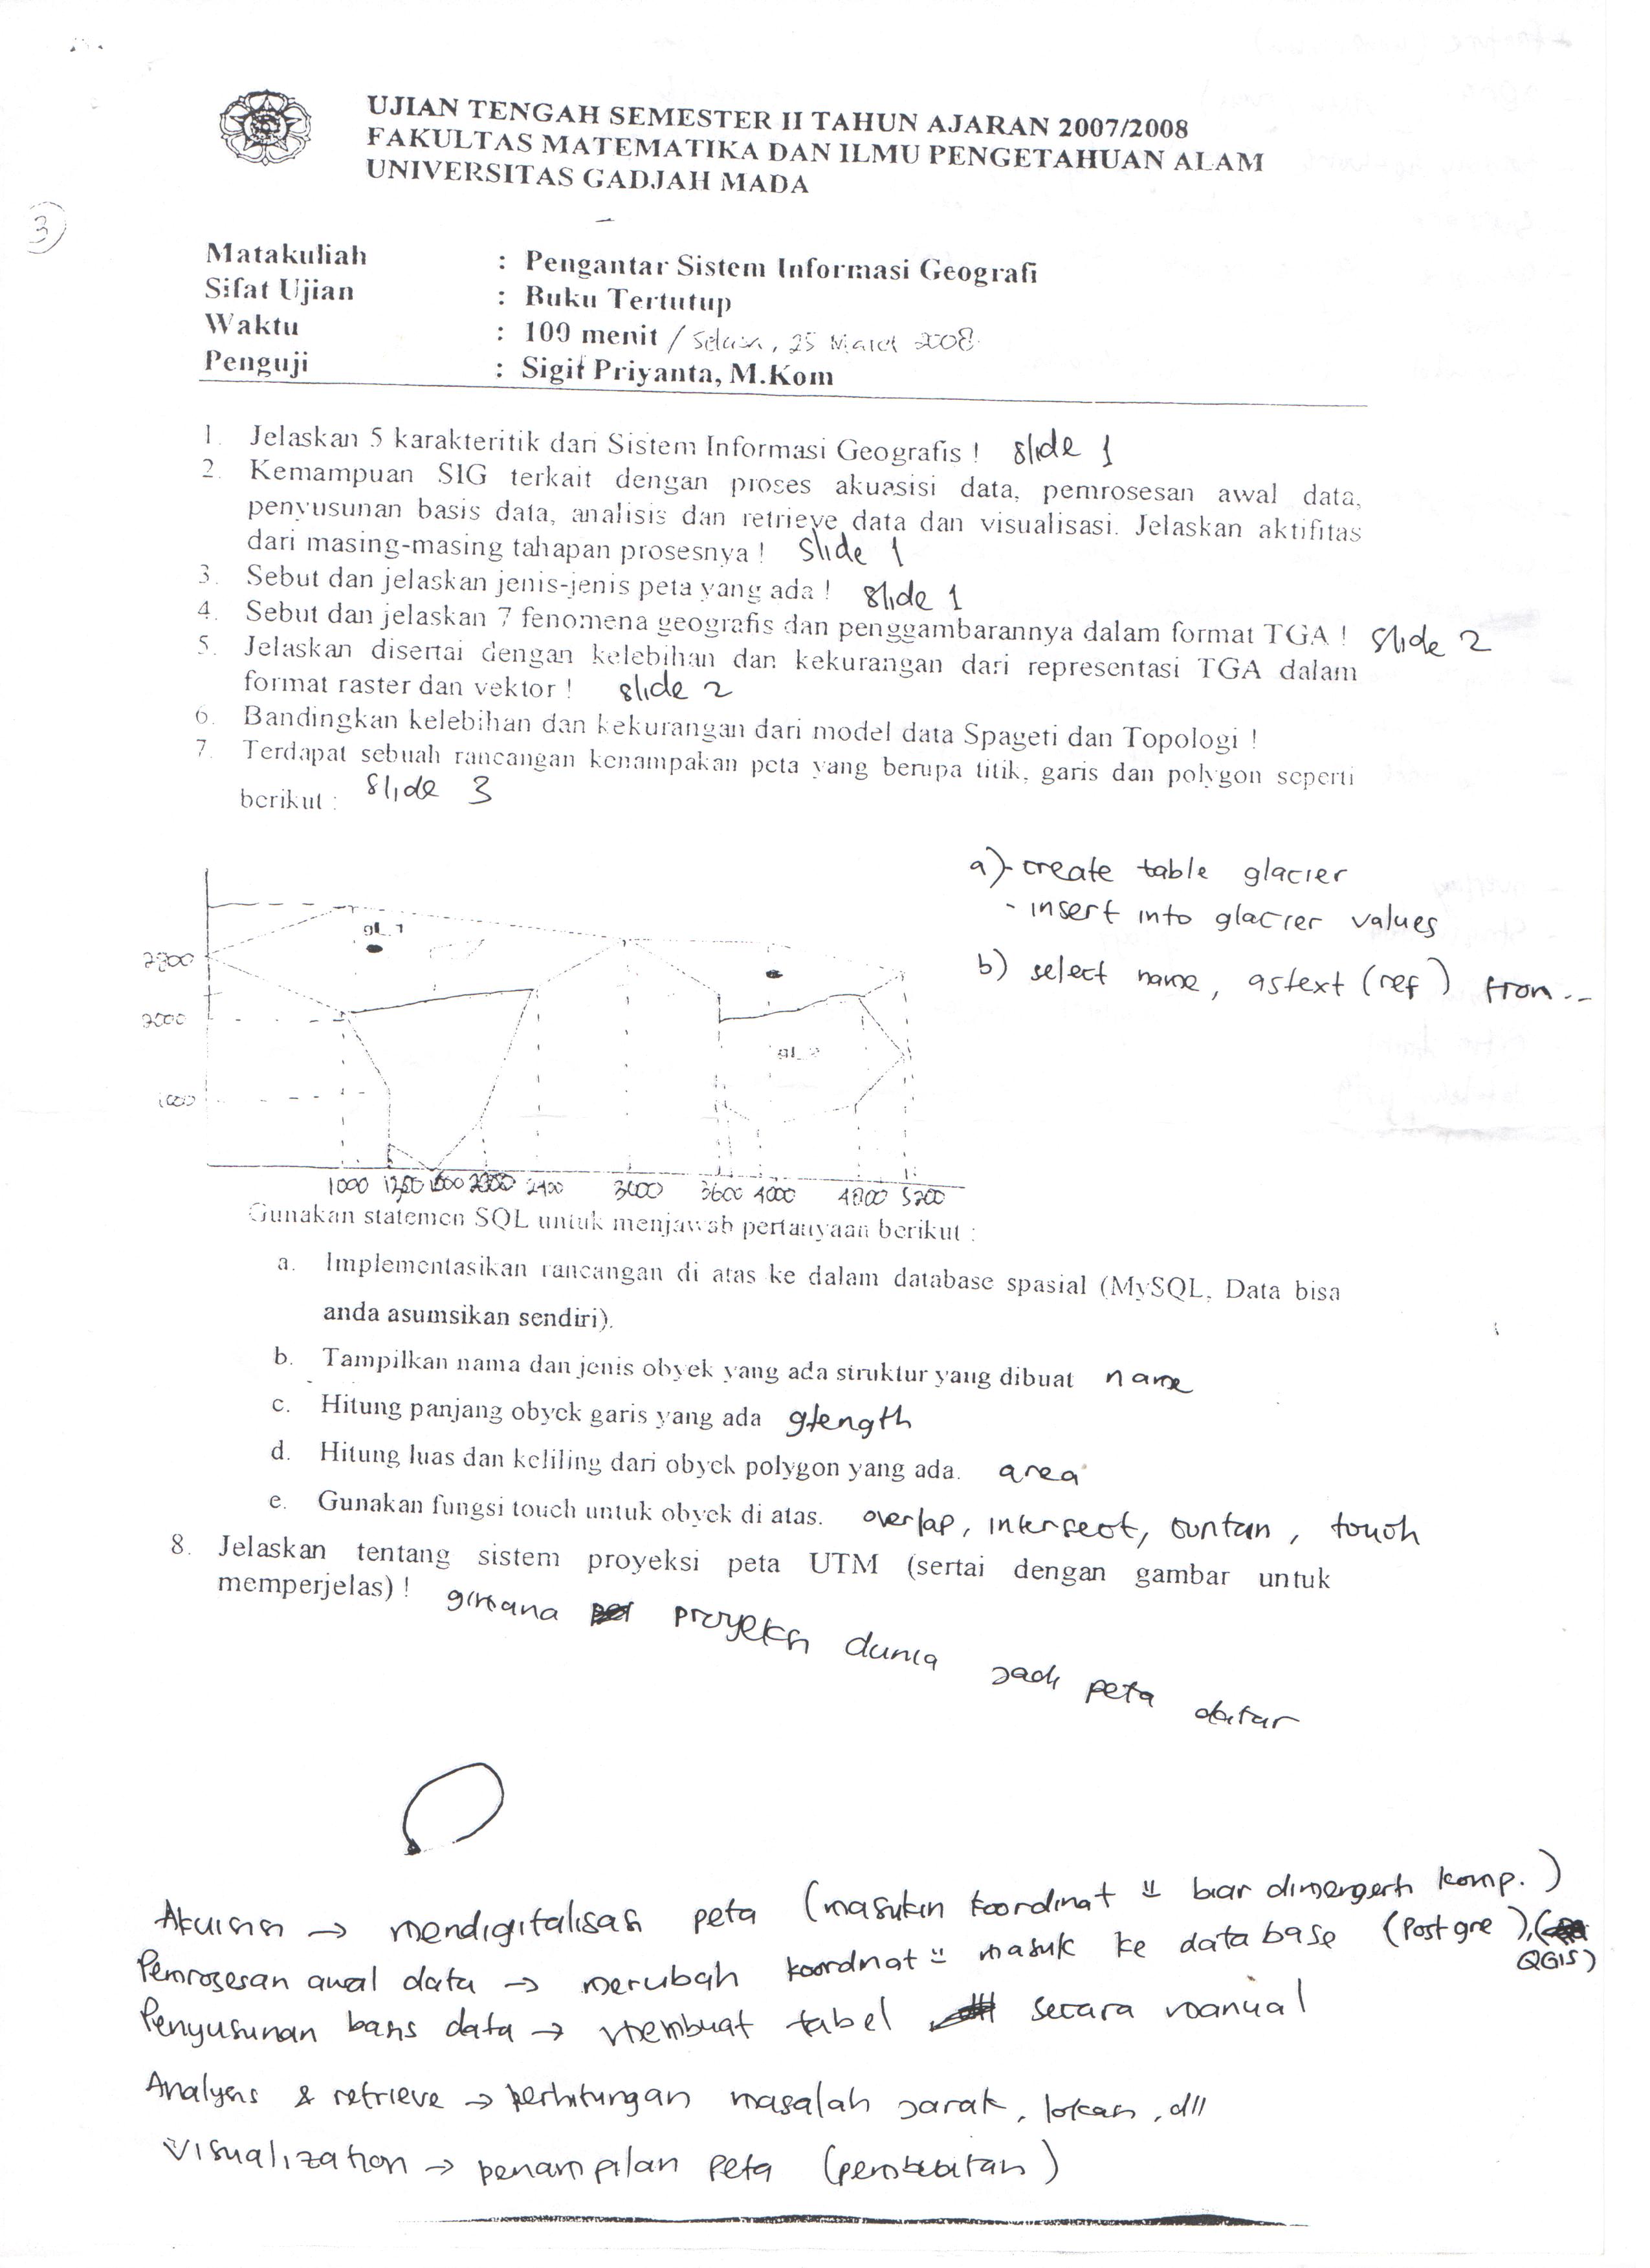 UJIAN TENGAH SEMESTER II TAHUN AJARAN 2007/2008
FAKULTAS MATEMATIKA DAN ILMU PENGETAHUAN ALAM
UNIVERSITAS GADJAH MADA
3
Matakuliah : Pengantar Sistem Informasi Geografi
Sifat Ujian : Buku Tertutup
Waktu : 100 menit / Selasa, 25 Maret 2008
Penguji : Sigit Priyanta, M.Kom
1. Jelaskan 5 karakteritik dari Sistem Informasi Geografis ! slide 1
2. Kemampuan SIG terkait dengan proses akuasisi data, pemrosesan awal data,
penyusunan basis data, analisis dan retrieve data dan visualisasi. Jelaskan aktifitas
dari masing-masing tahapan prosesnya ! slide 1
3. Sebut dan jelaskan jenis-jenis peta yang ada ! slide 1
4. Sebut dan jelaskan 7 fenomena geografis dan penggambarannya dalam format TGA ! slide 2
5. Jelaskan disertai dengan kelebihan dan kekurangan dari representasi TGA dalam
format raster dan vektor ! slide 2
6. Bandingkan kelebihan dan kekurangan dari model data Spageti dan Topologi !
7. Terdapat sebuah rancangan kenampakan peta yang berupa titik, garis dan polygon seperti
berikut : slide 3
a) - create table glacier
- insert into glacier values
b) select name, astext (ref) from ..
gl_1
2000
gl_2
1000
1000 1200 2400 3000 3600 4000 4800 5200
Gunakan statemen SQL untuk menjawab pertanyaan berikut :
a. Implementasikan rancangan di atas ke dalam database spasial (MySQL, Data bisa
anda asumsikan sendiri).
b. Tampilkan nama dan jenis obyek yang ada struktur yang dibuat name
c. Hitung panjang obyek garis yang ada glength
d. Hitung luas dan keliling dari obyek polygon yang ada. area
e. Gunakan fungsi touch untuk obyek di atas. overlap, intersect, contain, touch
8. Jelaskan tentang sistem proyeksi peta UTM (sertai dengan gambar untuk
memperjelas) ! gimana proyeksi dunia jadi peta datar
Akuisisi → mendigitalisasi peta (masukin koordinat" biar dimengerti komp.)
Pemrosesan awal data → merubah koordinat" masuk ke database (Postgre), (QGIS)
Penyusunan basis data → membuat tabel secara manual
Analysis & retrieve → perhitungan masalah jarak, lokasi, dll
Visualization → penampilan peta